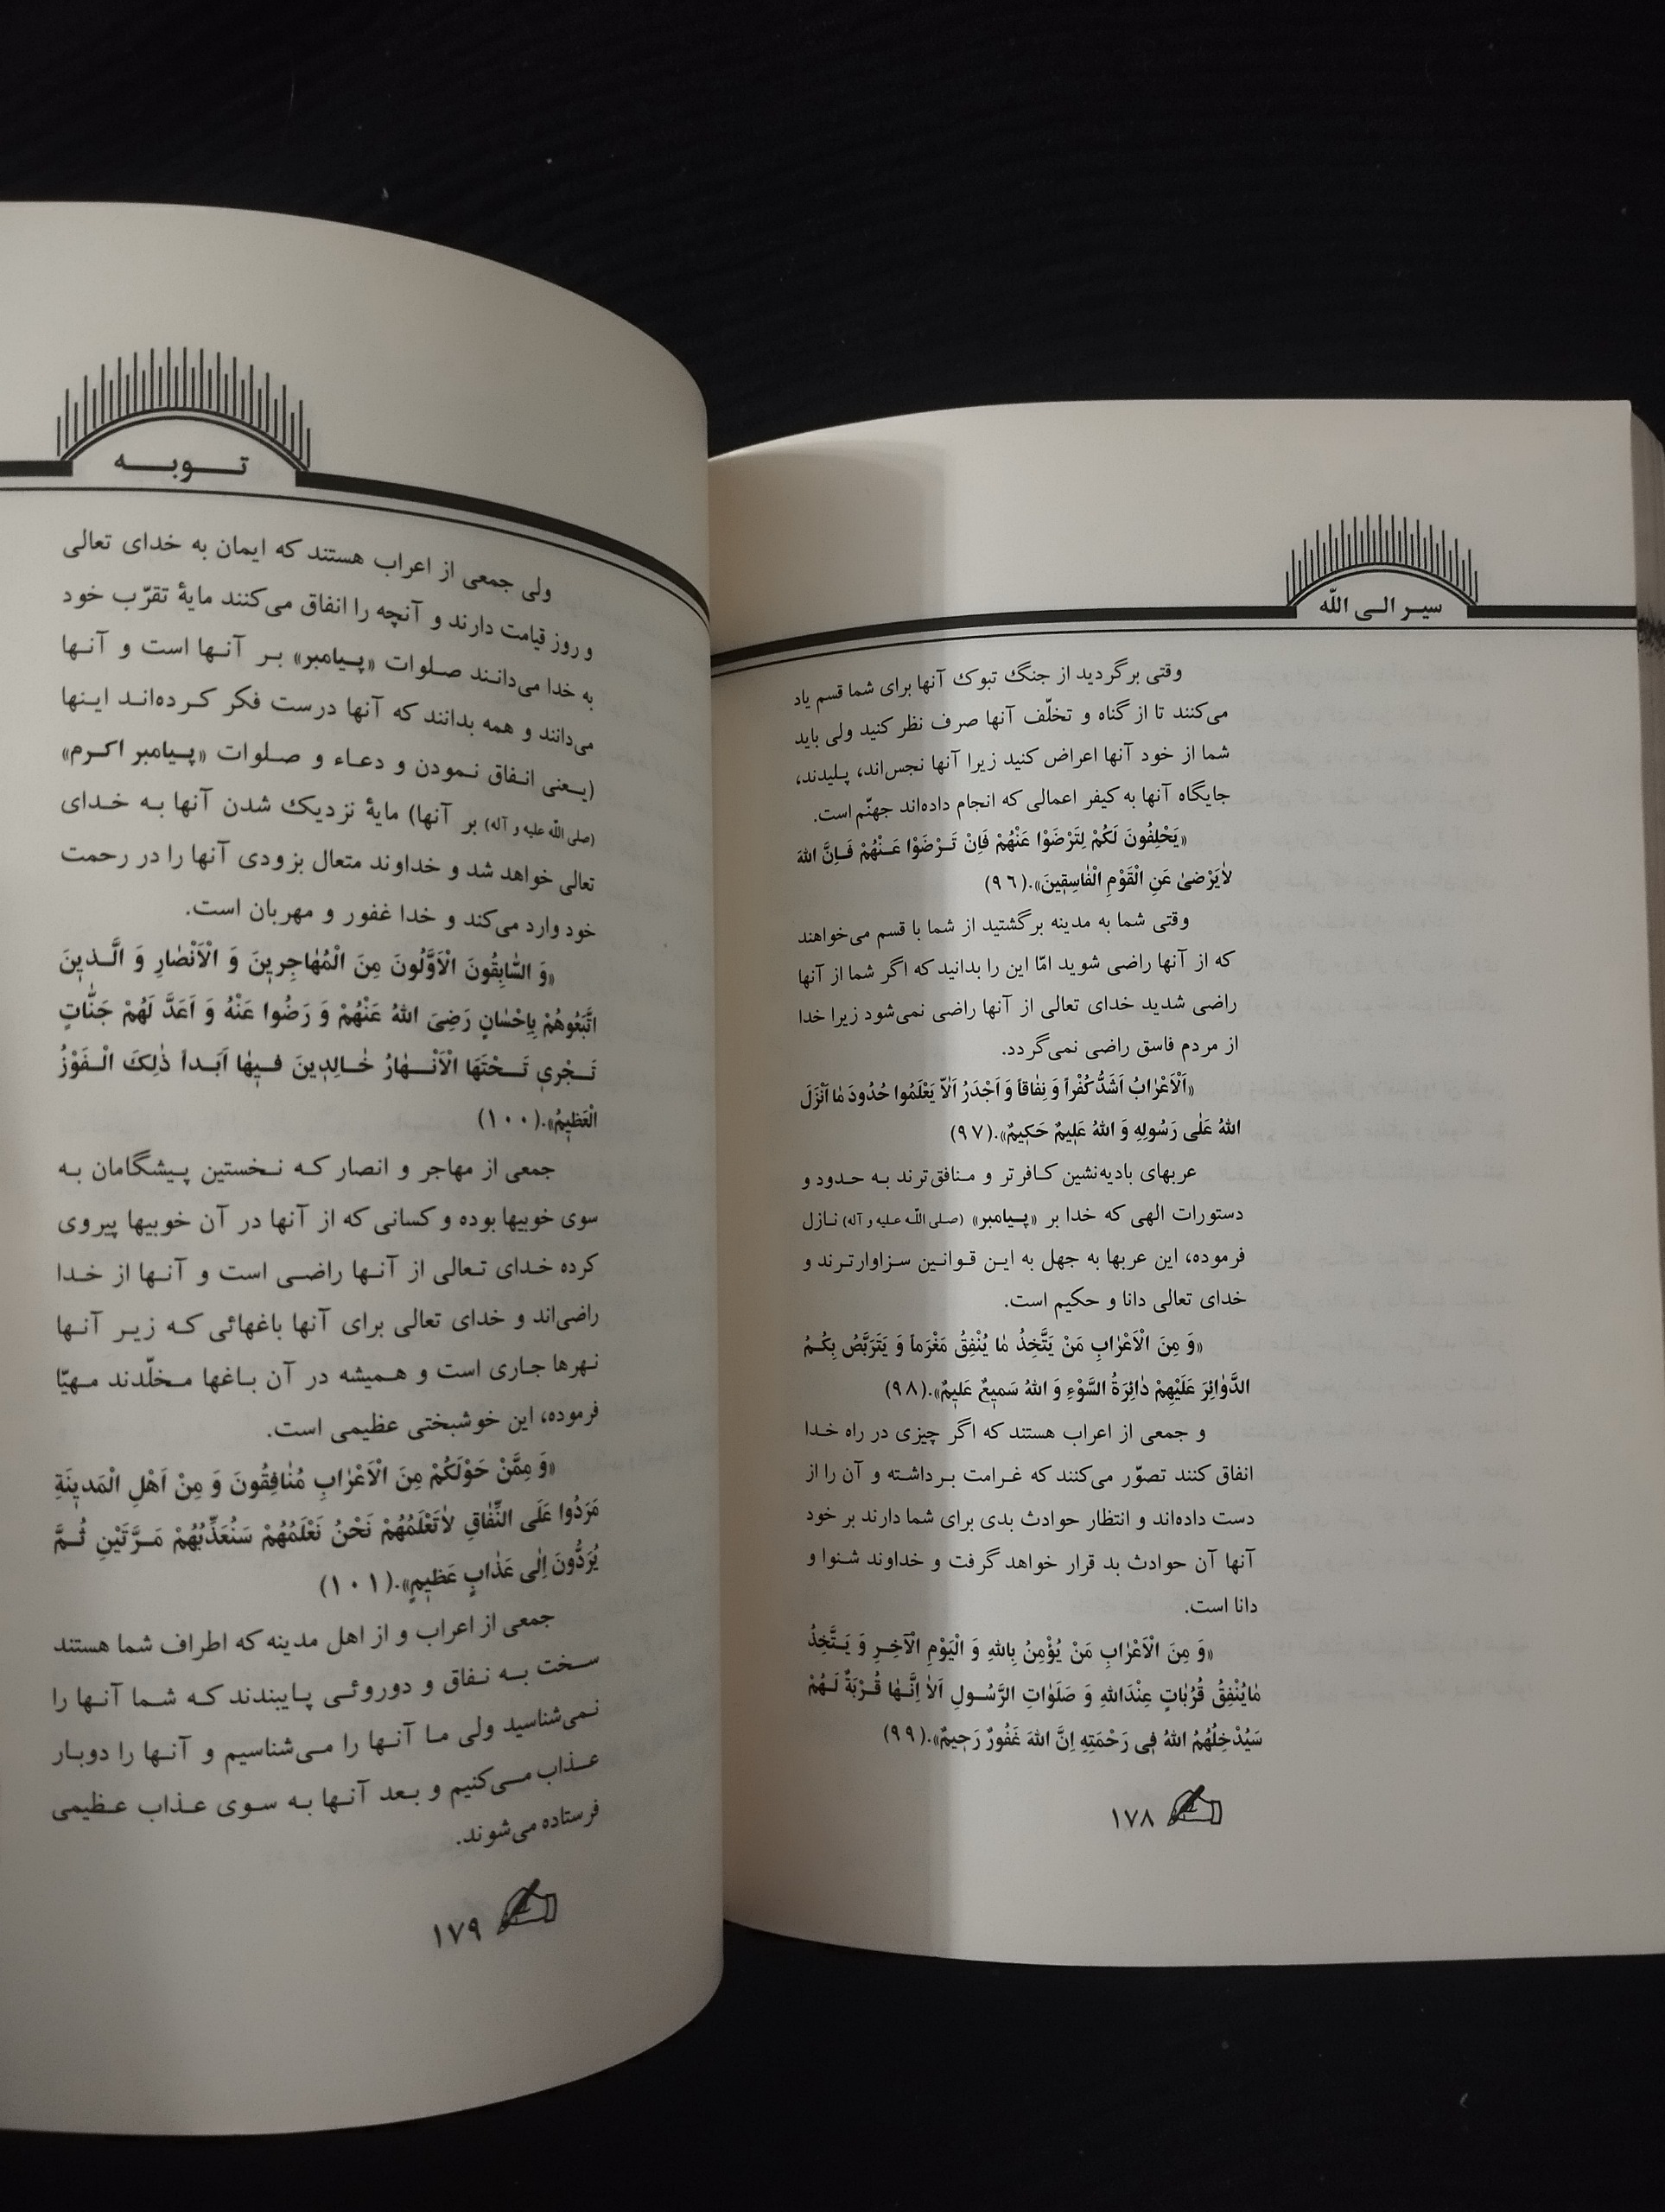 سیر الی اللّه
وقتی برگردید از جنگ تبوک آنها برای شما قسم یاد
می‌کنند تا از گناه و تخلّف آنها صرف نظر کنید ولی باید
شما از خود آنها اعراض کنید زیرا آنها نجس‌اند، پلیدند،
جایگاه آنها به کیفر اعمالی که انجام داده‌اند جهنّم است.
«یَحْلِفُونَ لَکُمْ لِتَرْضَوْا عَنْهُمْ فَاِنْ تَرْضَوْا عَنْهُمْ فَاِنَّ اللهَ
لٰایَرْضیٰ عَنِ الْقَوْمِ الْفٰاسِقِینَ».(۹۶)
وقتی شما به مدینه برگشتید از شما با قسم می‌خواهند
که از آنها راضی شوید امّا این را بدانید که اگر شما از آنها
راضی شدید خدای تعالی از آنها راضی نمی‌شود زیرا خدا
از مردم فاسق راضی نمی‌گردد.
«اَلْاَعْرٰابُ اَشَدُّ کُفْراً وَ نِفٰاقاً وَ اَجْدَرُ اَلاّٰ یَعْلَمُوا حُدُودَ مٰا اَنْزَلَ
اللهُ عَلٰی رَسُولِهِ وَ اللهُ عَلِیمٌ حَکِیمٌ».(۹۷)
عربهای بادیه‌نشین کافرتر و منافق‌ترند به حدود و
دستورات الهی که خدا بر «پیامبر» (صلی اللّه علیه و آله) نازل
فرموده، این عربها به جهل به این قوانین سزاوارترند و
خدای تعالی دانا و حکیم است.
«وَ مِنَ الْاَعْرٰابِ مَنْ یَتَّخِذُ مٰا یُنْفِقُ مَغْرَماً وَ یَتَرَبَّصُ بِکُمُ
الدَّوٰائِرَ عَلَیْهِمْ دٰائِرَةُ السَّوْءِ وَ اللهُ سَمِیعٌ عَلِیمٌ».(۹۸)
و جمعی از اعراب هستند که اگر چیزی در راه خدا
انفاق کنند تصوّر می‌کنند که غرامت برداشته و آن را از
دست داده‌اند و انتظار حوادث بدی برای شما دارند بر خود
آنها آن حوادث بد قرار خواهد گرفت و خداوند شنوا و
دانا است.
«وَ مِنَ الْاَعْرٰابِ مَنْ یُؤْمِنُ بِاللهِ وَ الْیَوْمِ الْآخِرِ وَ یَتَّخِذُ
مٰایُنْفِقُ قُرُبٰاتٍ عِنْدَاللهِ وَ صَلَوٰاتِ الرَّسُولِ اَلاٰ اِنَّهٰا قُرْبَةٌ لَهُمْ
سَیُدْخِلُهُمُ اللهُ فِی رَحْمَتِهِ اِنَّ اللهَ غَفُورٌ رَحِیمٌ».(۹۹)
۱۷۸
توبه
ولی جمعی از اعراب هستند که ایمان به خدای تعالی
و روز قیامت دارند و آنچه را انفاق می‌کنند مایهٔ تقرّب خود
به خدا می‌دانند صلوات «پیامبر» بر آنها است و آنها
می‌دانند و همه بدانند که آنها درست فکر کرده‌اند اینها
(یعنی انفاق نمودن و دعاء و صلوات «پیامبر اکرم»
(صلی اللّه علیه و آله) بر آنها) مایهٔ نزدیک شدن آنها به خدای
تعالی خواهد شد و خداوند متعال بزودی آنها را در رحمت
خود وارد می‌کند و خدا غفور و مهربان است.
«وَ السّٰابِقُونَ الْاَوَّلُونَ مِنَ الْمُهٰاجِرِینَ وَ الْاَنْصٰارِ وَ الَّذِینَ
اتَّبَعُوهُمْ بِاِحْسٰانٍ رَضِیَ اللهُ عَنْهُمْ وَ رَضُوا عَنْهُ وَ اَعَدَّ لَهُمْ جَنّٰاتٍ
تَجْرِی تَحْتَهَا الْاَنْهٰارُ خٰالِدِینَ فِیهٰا اَبَداً ذٰلِکَ الْفَوْزُ
الْعَظِیمُ».(۱۰۰)
جمعی از مهاجر و انصار که نخستین پیشگامان به
سوی خوبیها بوده و کسانی که از آنها در آن خوبیها پیروی
کرده خدای تعالی از آنها راضی است و آنها از خدا
راضی‌اند و خدای تعالی برای آنها باغهائی که زیر آنها
نهرها جاری است و همیشه در آن باغها مخلّدند مهیّا
فرموده، این خوشبختی عظیمی است.
«وَ مِمَّنْ حَوْلَکُمْ مِنَ الْاَعْرٰابِ مُنٰافِقُونَ وَ مِنْ اَهْلِ الْمَدِینَةِ
مَرَدُوا عَلَی النِّفٰاقِ لٰاتَعْلَمُهُمْ نَحْنُ نَعْلَمُهُمْ سَنُعَذِّبُهُمْ مَرَّتَیْنِ ثُمَّ
یُرَدُّونَ اِلٰی عَذٰابٍ عَظِیمٍ».(۱۰۱)
جمعی از اعراب و از اهل مدینه که اطراف شما هستند
سخت به نفاق و دوروئی پایبندند که شما آنها را
نمی‌شناسید ولی ما آنها را می‌شناسیم و آنها را دوبار
عذاب می‌کنیم و بعد آنها به سوی عذاب عظیمی
فرستاده می‌شوند.
۱۷۹